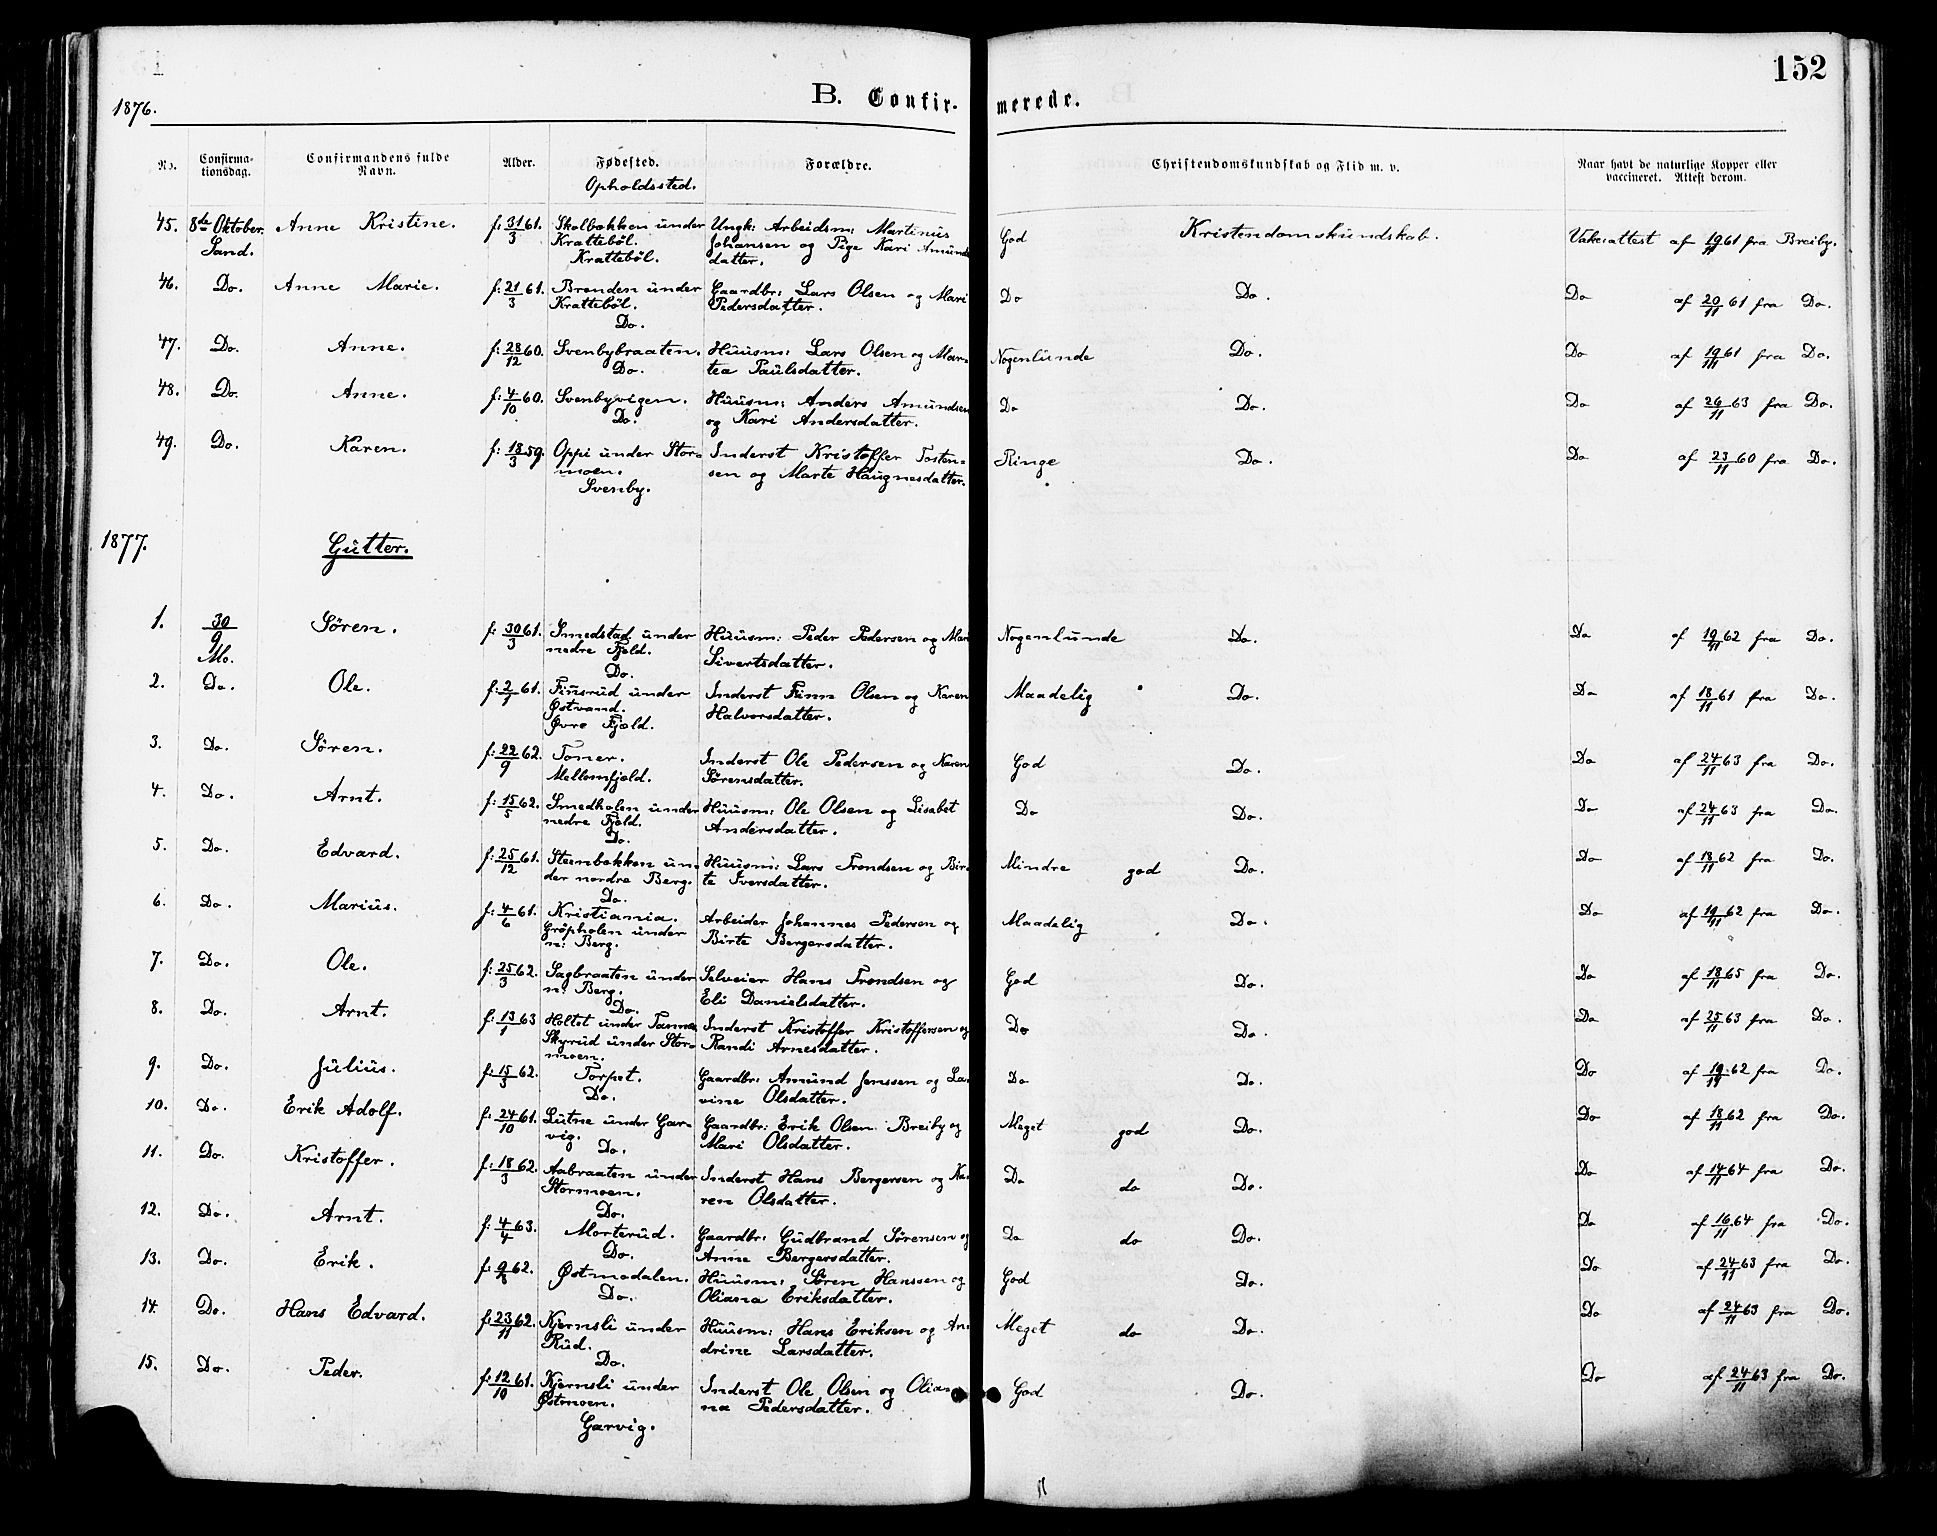 152
1876.
B. Confirmerede.
No. Confirmationsdag. Confirmandens fulde Navn. Alder. Fødested. Opholdssted. Forældre. Christendomskundskab og Flid m. v. Naar havt de naturlige Kopper eller vaccineret. Attest derom.
45. 8de Oktober. Anne Kristine. f: 31/3 61. Skolbakken under Ungk: Arbeidsm: Martinus God Kristendomskundskab. Vakc: attest af 19/11 61 fra Breiby.
Sand. Krattebøl. Johansen og Pige Kari Amunds
Krattebøl. datter.
46. Do. Anne Marie. f: 21/3 61. Brenden under Gaardbr: Lars Olsen og Mari Do Do. Do af 20/11 61 fra Do.
Krattebøl. Pedersdatter.
Do.
47. Do. Anne. f: 28/12 60. Svenbybraaten. Huusm: Lars Olsen og Mar- Nogenlunde Do. Do af 19/11 61 fra Do.
Do. tea Paulsdatter.
48. Do. Anne. f: 4/10 60. Svenbyvigen. Huusm: Anders Amundsen Do Do. Do af 26/11 63 fra Do.
Do. og Kari Andersdatter.
49. Do. Karen. f: 18/3 59. Oppi under Stor- Inderst Kristoffer Tosten- Ringe Do. Do af 23/11 60 fra Do.
moen. sen og Marte Haugnesdatter.
Svenby.
1877. Gutter.
1. 30/9 Søren. f: 30/3 61. Smedstad under Huusm: Peder Pedersen og Mari Nogenlunde Do. Do af 19/11 62 fra Do.
Mo. nedre Fjeld. Sivertsdatter.
Do.
2. Do. Ole. f: 2/7 61. Finsrud under Inderst Finn Olsen og Karen Maadelig Do. Do af 18/11 61 fra Do.
Østvand. Halvorsdatter.
Øvre Fjeld.
3. Do. Søren. f: 22/9 62. Tomer. Inderst Ole Pedersen og Karen God Do. Do af 24/11 63 fra Do.
Mellemfjeld. Sørensdatter.
4. Do. Arnt. f: 15/5 62. Smedholen under Huusm: Ole Olsen og Lisabet Do Do. Do af 24/11 63 fra Do.
nedre Fjeld. Andersdatter.
Do.
5. Do. Edvard. f: 25/12 61. Steenbakken un- Huusm: Lars Trondsen og Bir- Mindre god Do. Do af 18/11 62 fra Do.
der nordre Berg. te Iversdatter.
Do.
6. Do. Marius. f: 4/6 61. Kristiania. Arbeider Johannes Pedersen og Maadelig Do. Do af 19/11 62 fra Do.
Grøpholen under Birte Bergersdatter.
n: Berg.
7. Do. Ole. f: 25/3 62. Sagbraaten under Selveier Hans Trondsen og God Do. Do af 18/11 65 fra Do.
n: Berg. Eli Danielsdatter.
Do.
8. Do. Arnt. f: 13/1 63 Holtet under Inderst Kristoffer Kristoffersen og Do Do. Do af 25/11 63 fra Do.
Skyrud under Stor- Randi Arnesdatter.
moen.
9. Do. Julius. f: 15/3 62. Torpet. Gaardbr: Amund Jenssen og La- Do Do. Do af 19/11 62 fra Do.
Do. vine Olsdatter.
10. Do. Erik Adolf. f: 24/10 61. Lutne under Gar- Gaardbr: Erik Olsen Breiby og Meget god Do. Do af 18/11 62 fra Do.
vig. Mari Olsdatter.
Do.
11. Do. Kristoffer. f: 18/3 62. Aabraaten under Inderst Hans Bergersen og Ka- Do do Do. Do af 14/11 64 fra Do.
Stormoen. ren Olsdatter.
Do.
12. Do. Arnt. f: 4/4 63. Morterud. Gaardbr: Gudbrand Sørensen og Do do Do. Do af 16/11 64 fra Do.
Do. Anne Bergersdatter.
13. Do. Erik. f: 62. Østmodalen. Huusm: Søren Hanssen og God Do. Do af 24/11 63 fra Do.
Do. Oliana Eriksdatter.
14 Do. Hans Edvard. f: 23/11 62. Kjernsli under Huusm: Hans Eriksen og An- Meget do Do. Do af 24/11 63 fra Do.
Rud. drine Larsdatter.
Do.
15. Do. Peder. f: 12/10 61. Kjernsli under Inderst Ole Olsen og Olia- God Do. Do af 24/11 63 fra Do.
Østmoen. na Pedersdatter.
Garvig.